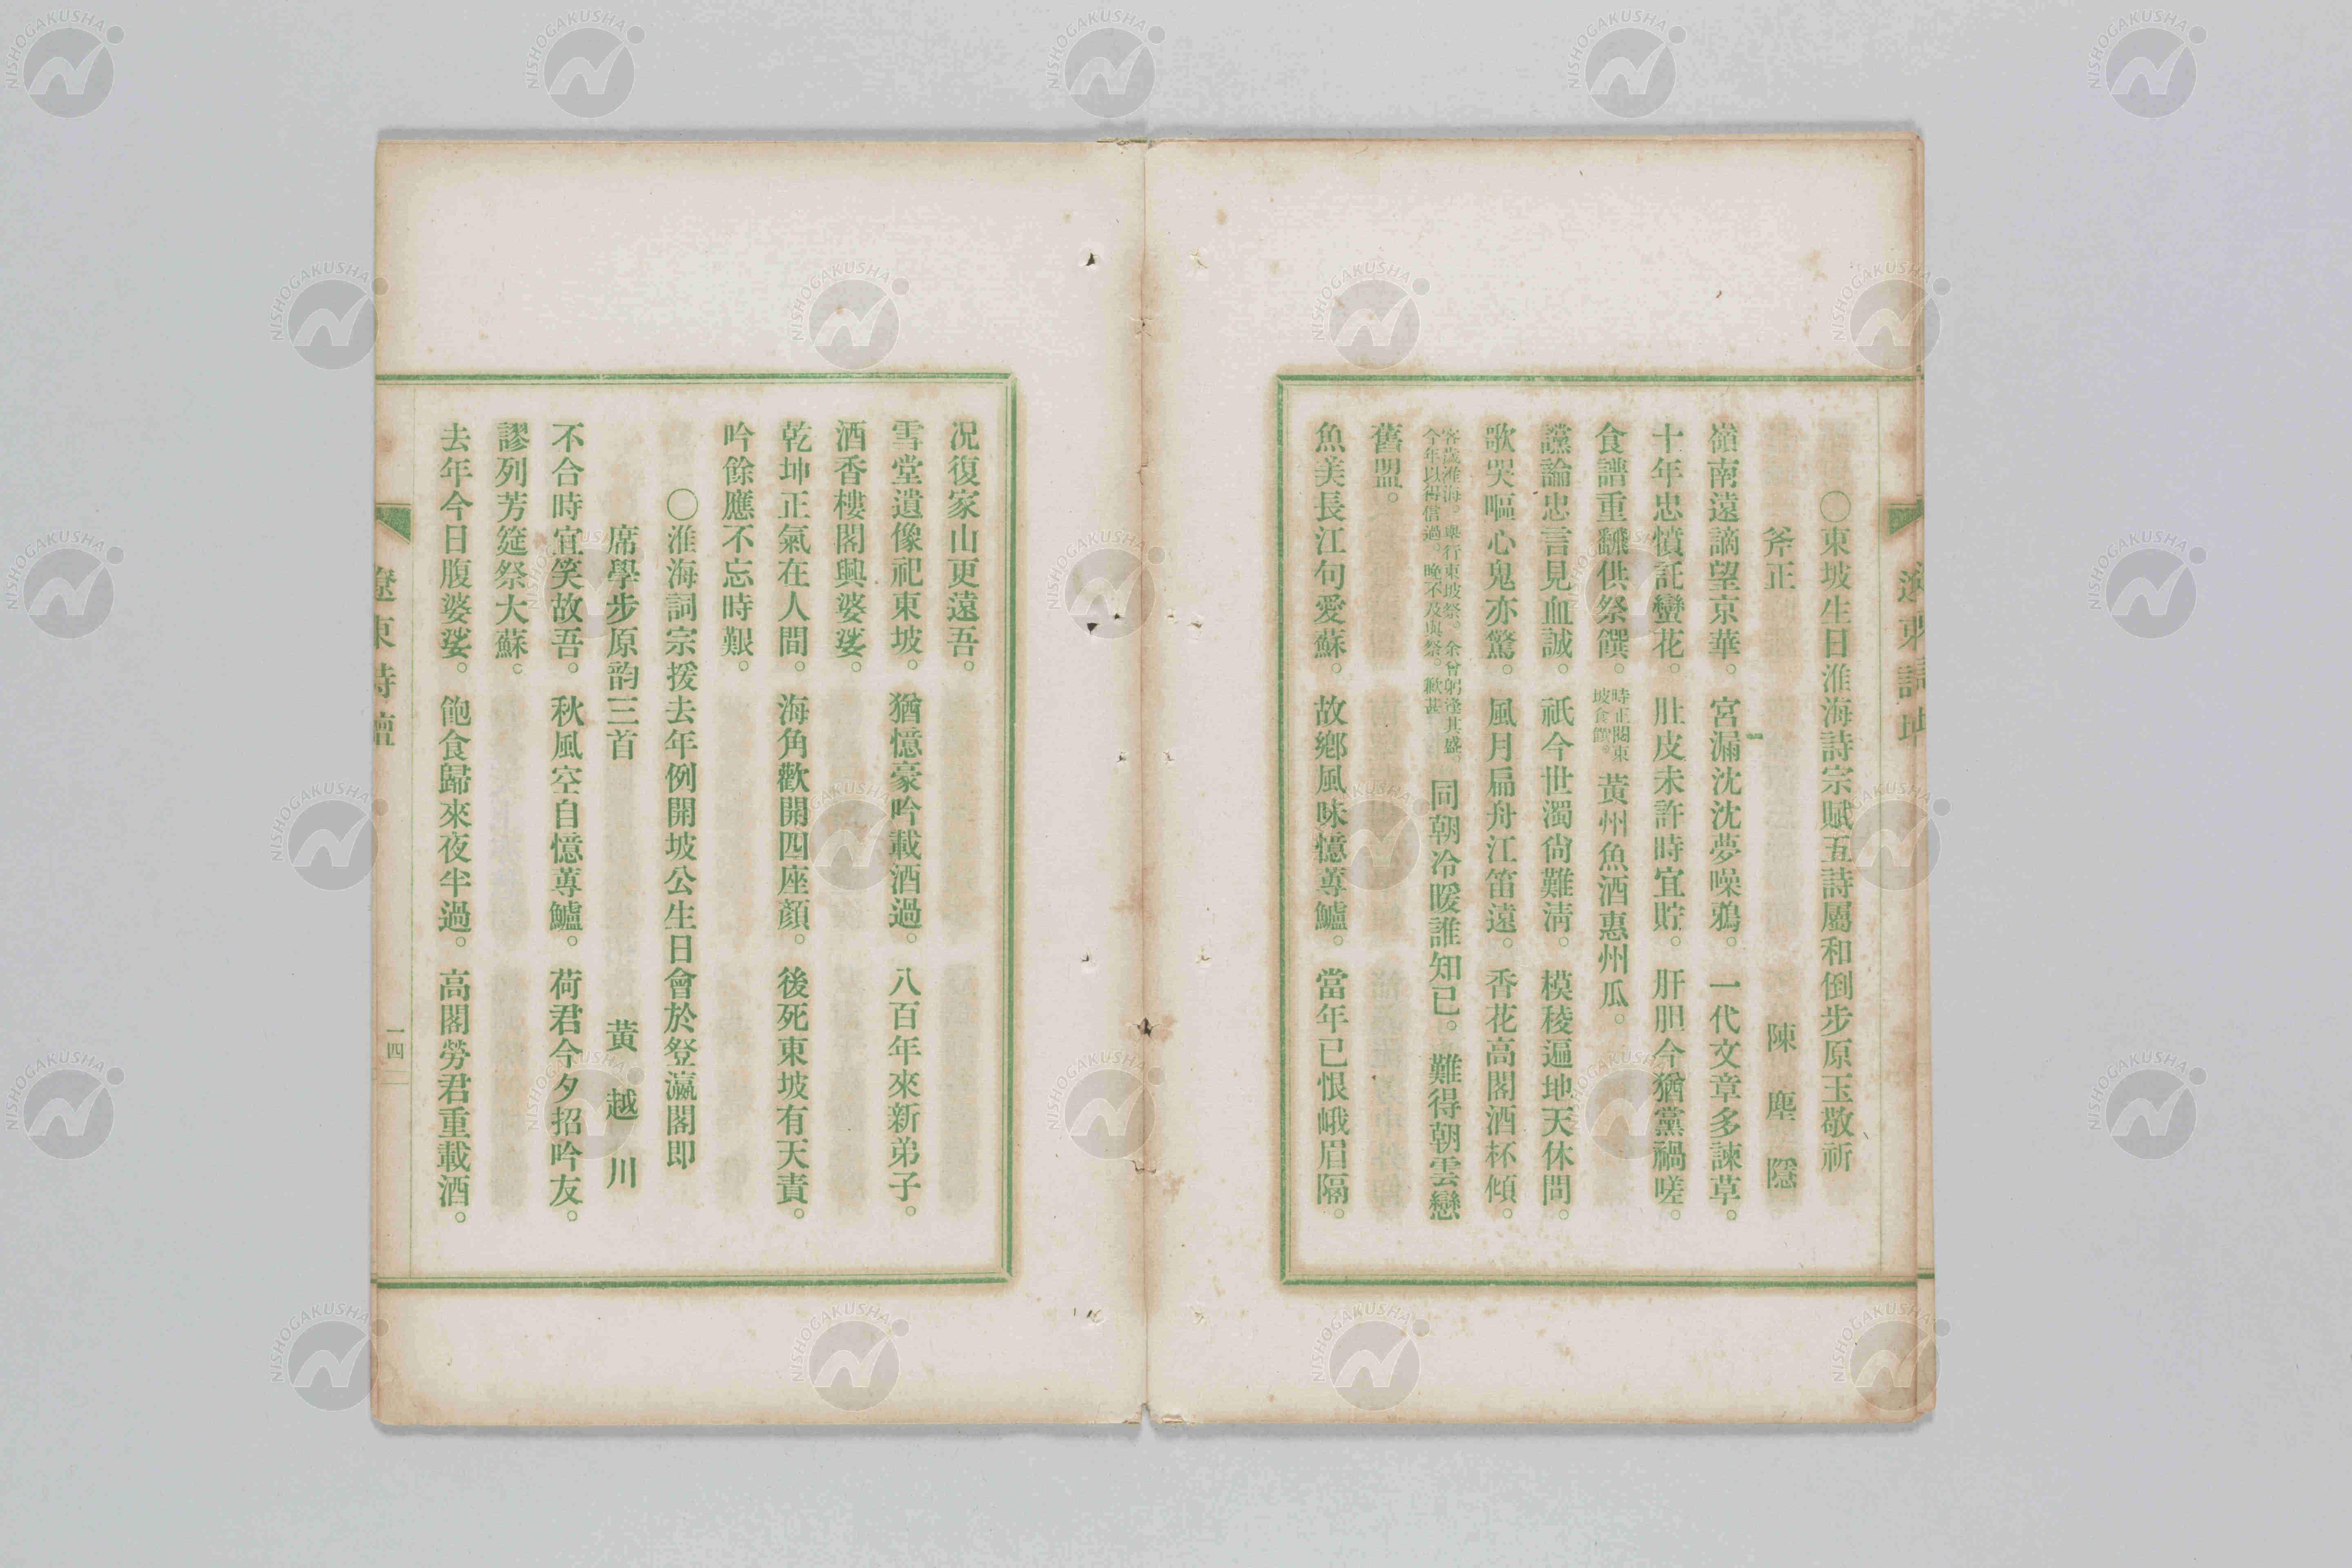 〇東坡生日淮海詩宗賦五詩屬和倒步原玉敬祈
斧正 陳塵隱
嶺南遠謫望京華。宮漏沈沈夢噪鴉。一代文章多諫草。
十年忠憤託蠻花。肚皮未許時宜貯。肝胆今猶黨禍嗟。
食譜重翻供祭饌。時正閱東坡食饌。黃州魚酒惠州瓜。
讜論忠言見血誠。祇今世濁尙難淸。模稜遍地天休問。
歌哭嘔心鬼亦驚。風月扁舟江笛遠。香花高閣酒杯傾。
客歲淮海。舉行東坡祭。余曾躬逢其盛。今年以得信過。晚不及與祭。歉甚。同朝冷暖誰知已。難得朝雲戀
舊盟。
魚美長江句愛蘇。故鄉風味憶蓴鱸。當年已恨峨眉隔。
况復家山更遠吾。
雪堂遺像祀東坡。猶憶豪吟載酒過。八百年來新弟子。
酒香樓閣興婆娑。
乾坤正氣在人間。海角歡開四座顏。後死東坡有天責。
吟餘應不忘時艱。
〇淮海詞宗援去年例開坡公生日會於登瀛閣即
席學步原韵三首 黃越川
不合時宜笑故吾。秋風空自憶蓴鱸。荷君今夕招吟友。
謬列芳筵祭大蘇。
去年今日腹婆娑。飽食歸來夜半過。高閣勞君重載酒。
遼東詩壇
一四